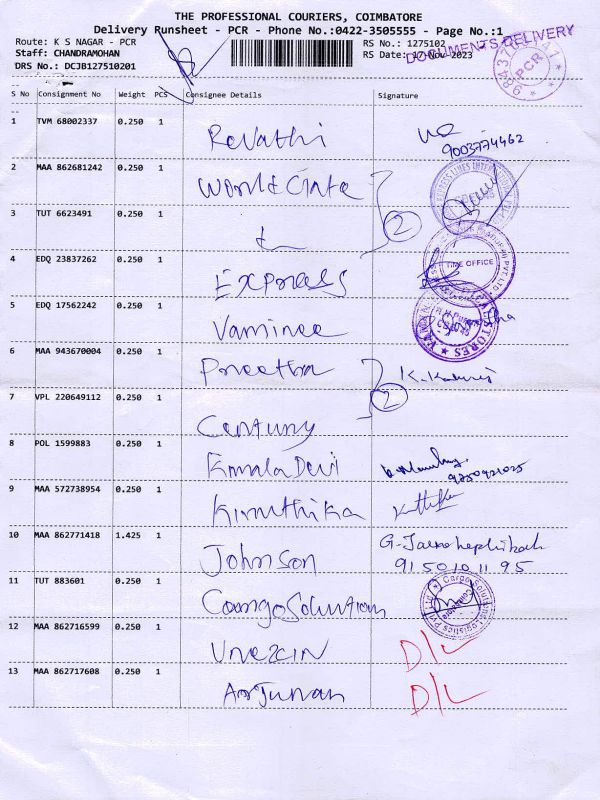 THE PROFESSIONAL COURIERS, COIMBATORE
Delivery Runsheet - PCR - Phone No.:0422-3505555 - Page No.:1
Route: K S NAGAR - PCR
RS No.: 1275102
DOCUMENTS DELIVERY
Staff: CHANDRAMOHAN
RS Date: 17-Nov-2023
DRS No.: DCJB127510201
PCR
S No Consignment No Weight PCS Consignee Details Signature
1 TVM 68002337 0.250 1 Revathi
9003774462
2 MAA 862681242 0.250 1 World Gate
3 TUT 6623491 0.250 1 2
4 EDQ 23837262 0.250 1 Express TIME OFFICE
5 EDQ 17562242 0.250 1 Vaminee STORES
6 MAA 943670004 0.250 1 Preetha
7 VPL 220649112 0.250 1 Century 2
8 POL 1599883 0.250 1 Kamala Devi
9 MAA 572738954 0.250 1 Kiruthika
10 MAA 862771418 1.425 1 Johnson
9150101195
11 TUT 883601 0.250 1 CargoSolution Cargo Solutions Logistics Pvt Ltd Coimbatore
12 MAA 862716599 0.250 1 D/L
13 MAA 862717608 0.250 1 Arjunan D/L